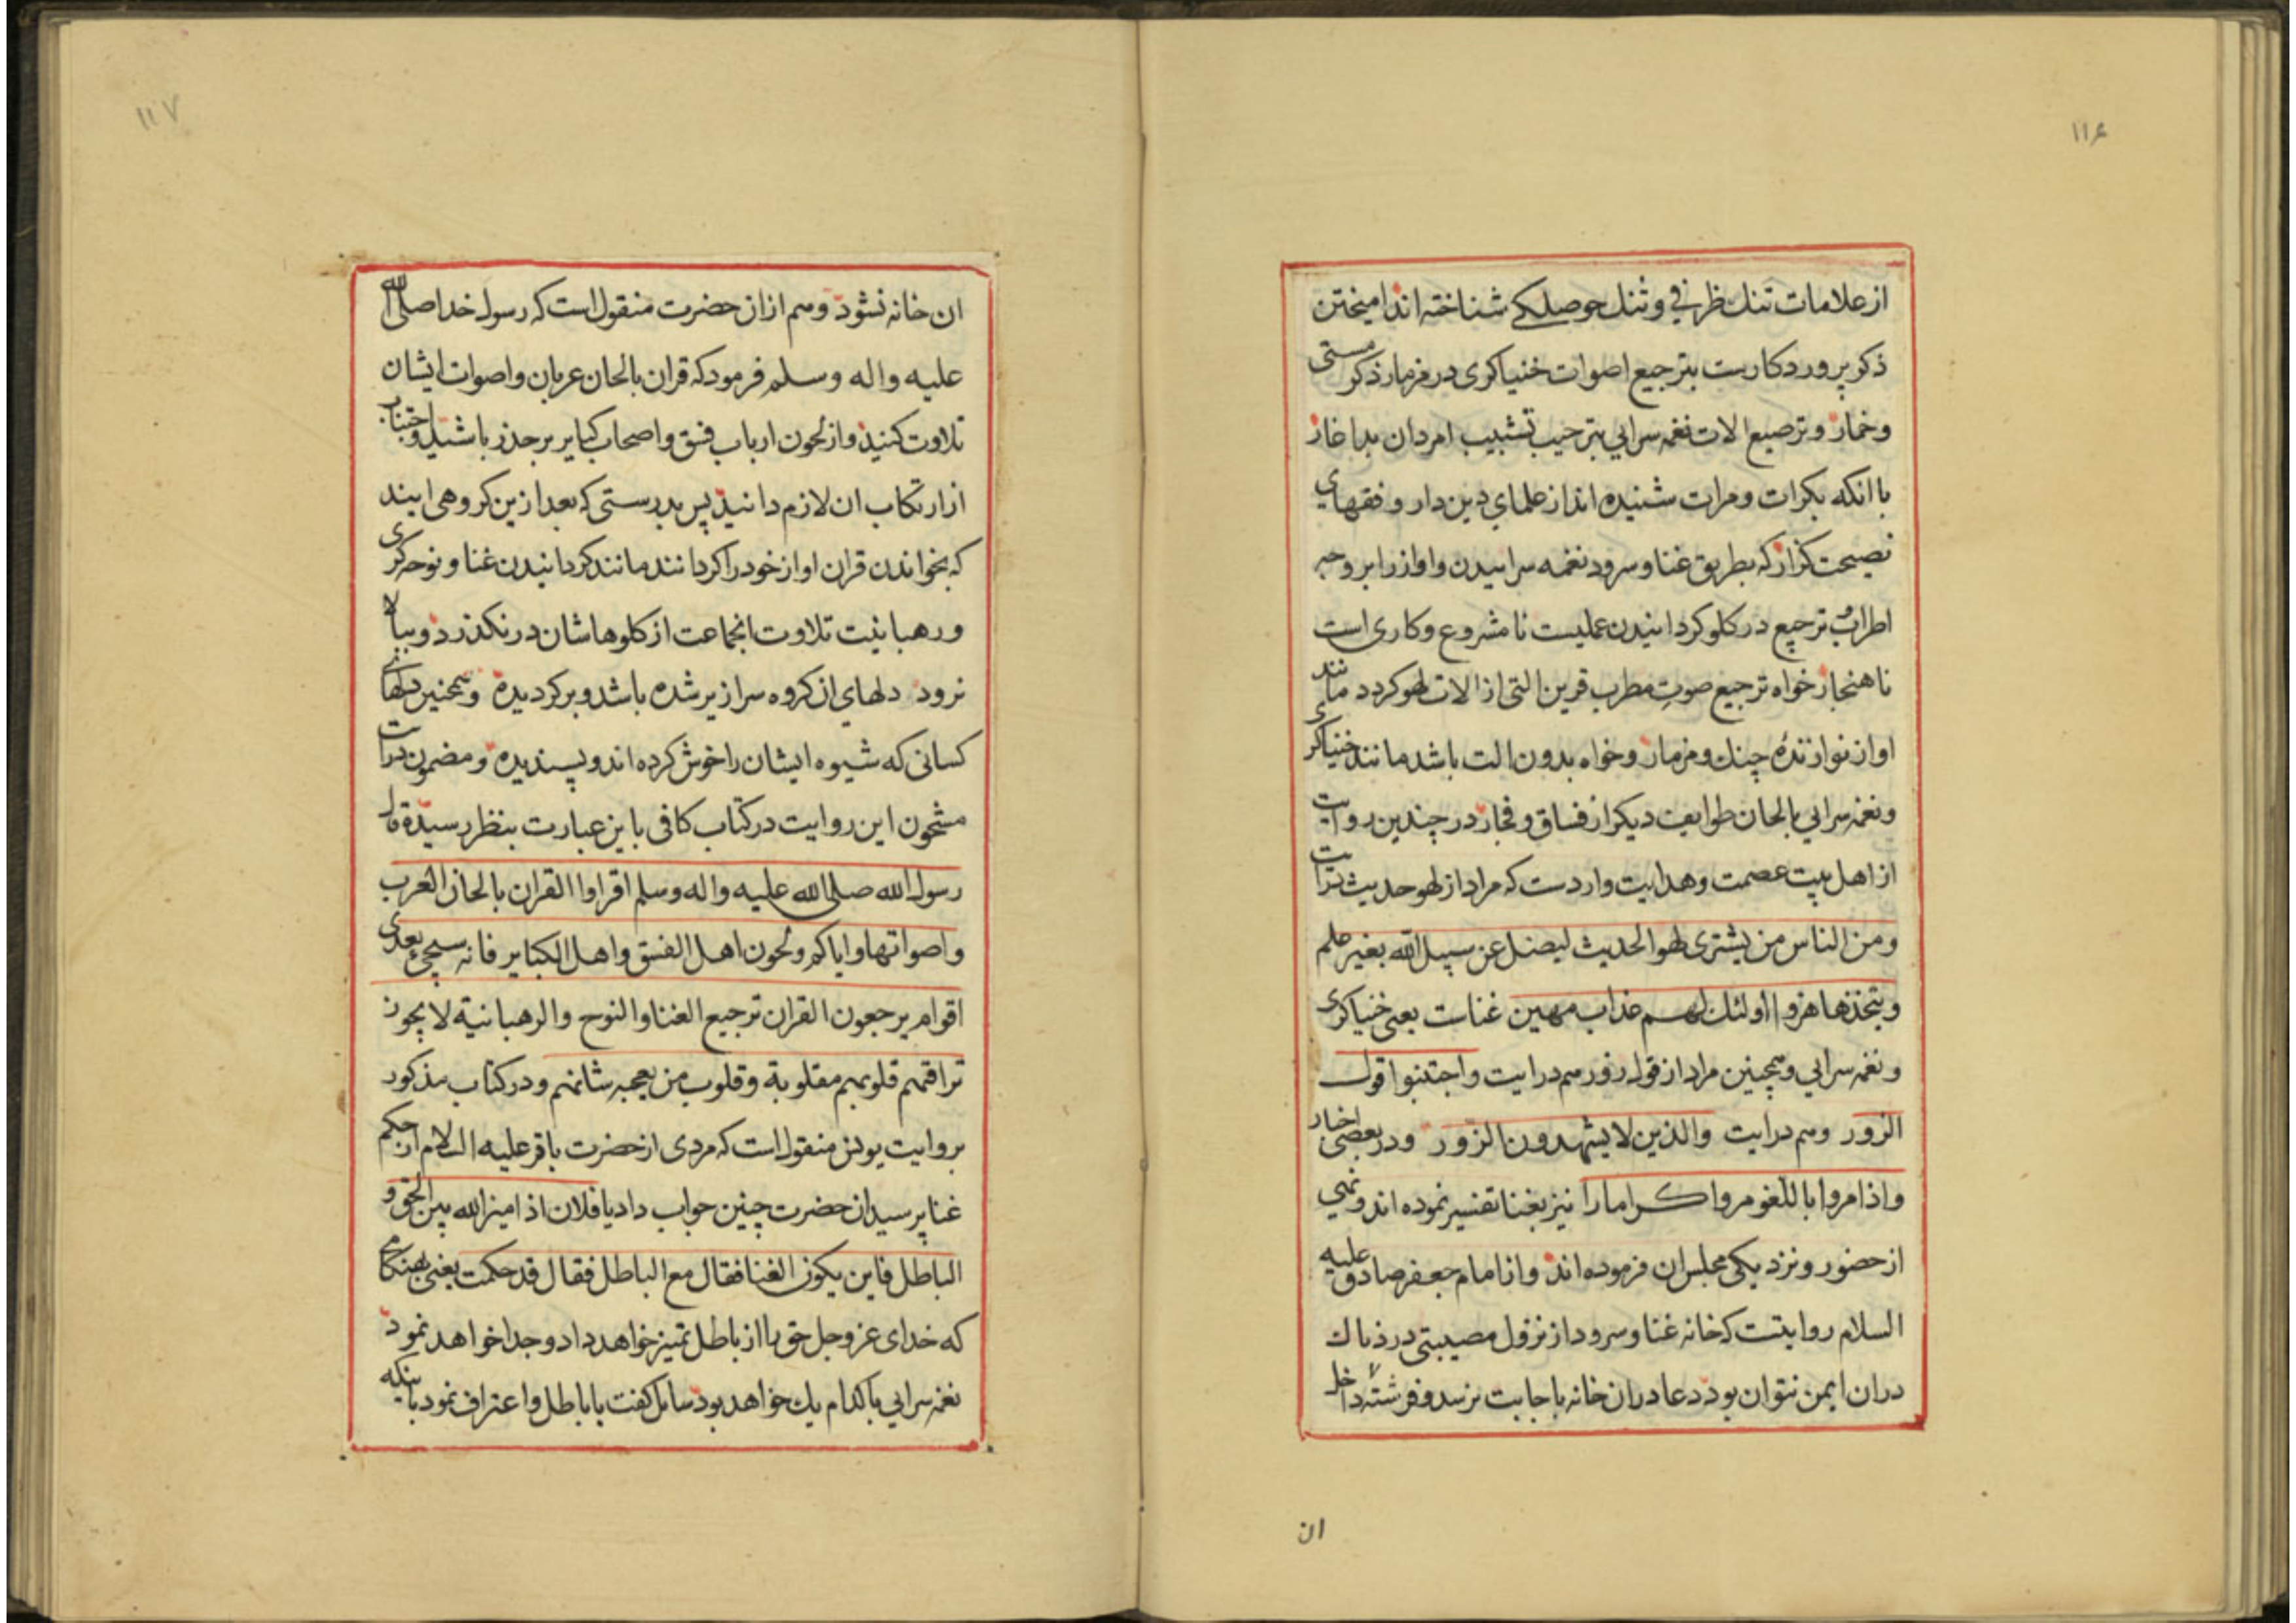 ۱۱۶
از علامات تنك ظرفي و تنك حوصلكے شناخته اند امیختن
ذکر پروردکارست بترجیع اصوات خنیاکری در مزمار ذکر مستی
و خمار و ترصیع الات نغمه سرایي بترحیب تشبیب امردان بد اغاز
با انکه بکرات و مرات شنیده اند از علمای دین دار و فقهای
نصیحت کزار که بطریق غنا و سرود نغمه سراییدن و اواز را بر وجه
اطراب و ترجیع در کلو کردانیدن عملیست نا مشروع و کاری است
نا هنجار خواه ترجیع صوت مطرب قرین التی از الات لهو کردد مانند
اواز نوازندۀ چنك و مزمار و خواه بدون الت باشد مانند خنیاکری
و نغمه سرایي بالحان طوایف دیکر از فساق و فجار در چندین روایت
از اهل بیت عصمت و هدایت وارد ست که مراد از لهو حدیث در ایت
و من الناس من یشتری لهو الحدیث لیضل عن سبیل الله بغیر علم
و یتخذها هزوا اولئك لهم عذاب مهین غناست یعنی خنیاکری
و نغمه سرایي و همچنین مراد از قول زور هم در ایت واجتنبوا قول
الزور و هم در ایت والذین لا یشهدون الزور و در بعضی اخبار
واذا مروا باللغو مروا کراما را نیز بغنا تفسیر نموده اند و نهي
از حضور و نزدیکی مجلس ان فرموده اند و از امام جعفر صادق علیه
السلام روایتست که خانه غنا و سرود از نزول مصیبتی دردناك
در ان ایمن نتوان بود دعا در ان خانه باجابت نرسد و فرشته داخل
ان
۱۱۷
ان خانه نشود و هم از ان حضرت منقول است که رسول خدا صلی الله
علیه واله وسلم فرمود که قران بالحان عربان و اصوات ایشان
تلاوت کنید و از لحون ارباب فسق و اصحاب کبایر بر حذر باشید و اجتناب
از ارتکاب ان لازم دانید پس بدرستی که بعد ازین کروهی ایند
که بخواندن قران اواز خود را کردانند مانند کردانیدن غنا و نوحه کری
و رهبانیت تلاوت انجماعت از کلوهاشان در نکذرد و ببالا
نرود دلهای ان کروه سرازیر شده باشد و برکردیده و همچنین دلهای
کسانی که شیوه ایشان را خوش کرده اند و پسندیده و مضمون درایت
مشحون این روایت در کتاب کافی باین عبارت بنظر رسیده قال
رسول الله صلی الله علیه واله وسلم اقراوا القران بالحان العرب
واصواتها وایاکم ولحون اهل الفسق واهل الکبایر فانه سیجئ بعدی
اقوام یرجعون القران ترجیع الغنا والنوح والرهبانیة لا یجوز
تراقیهم قلوبهم مقلوبة وقلوب من یعجبه شانهم و در کتاب مذکور
بروایت یونس منقول است که مردی از حضرت باقر علیه السلام از حکم
غنا پرسید ان حضرت چنین جواب داد یا فلان اذ امیز الله بین الحق و
الباطل فاین یکون الغنا فقال مع الباطل فقال قد حکمت یعنی هنکامی
که خدای عز وجل حق را از باطل تمییز خواهد داد و جدا خواهد نمود
نغمه سرایي با کدام یك خواهد بود سایل کفت با باطل و اعتراف نمود باینکه